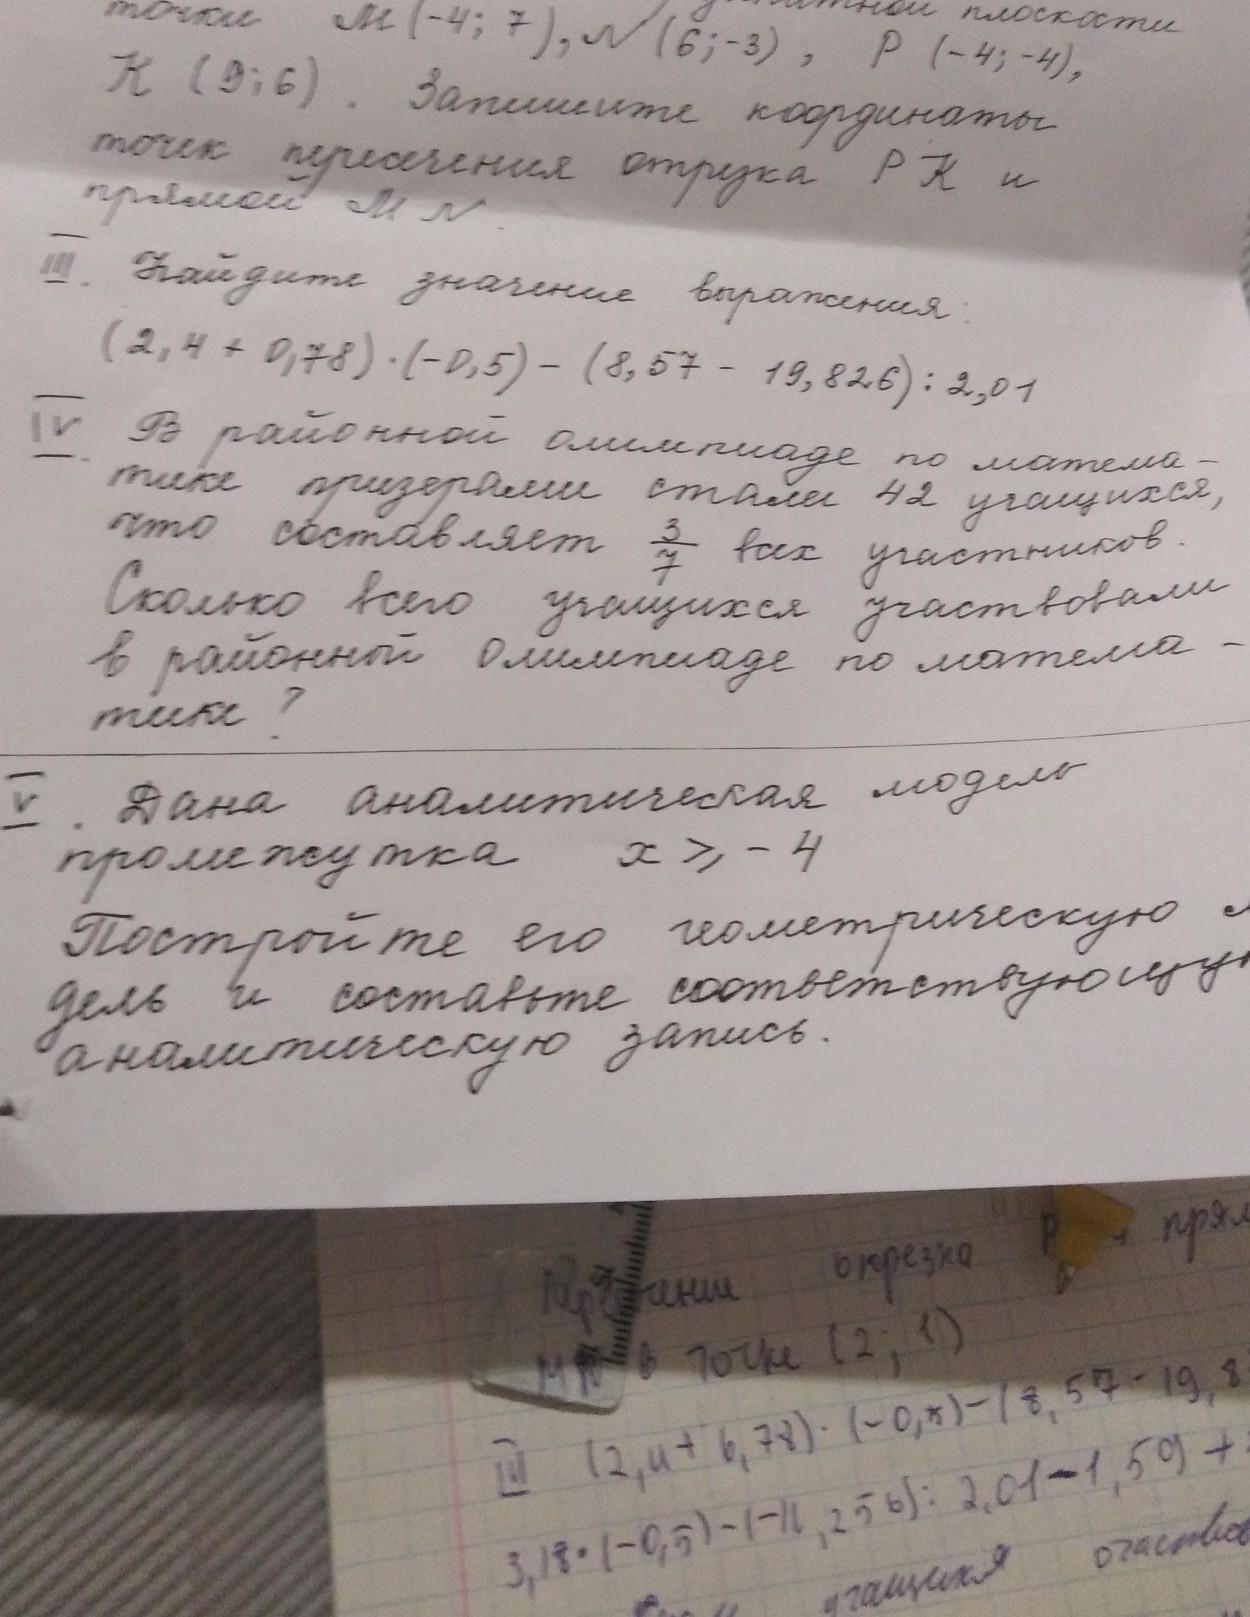 точки M (-4; 7), N (6; -3), P (-4; -4), плоскости
K (9; 6). Запишите координаты
точек пересечения отрезка PK и
прямой MN.
III. Найдите значение выражения:
(2,4 + 0,78) · (-0,5) - (8,57 - 19,826) : 2,01
IV. В районной олимпиаде по матема-
тике призерами стали 42 учащихся,
что составляет 3/7 всех участников.
Сколько всего учащихся участвовали
в районной олимпиаде по матема-
тике?
V. Дана аналитическая модель
промежутка x ⩾ -4
Постройте его геометрическую м
дель и составьте соответствующую
аналитическую запись.
отрезка P прям
MN в точке (2; 1)
III (2,4 + 0,78) · (-0,5) - (8,57 - 19,8
3,18 · (-0,5) - (-11,256) : 2,01 - 1,59 +
учащихся